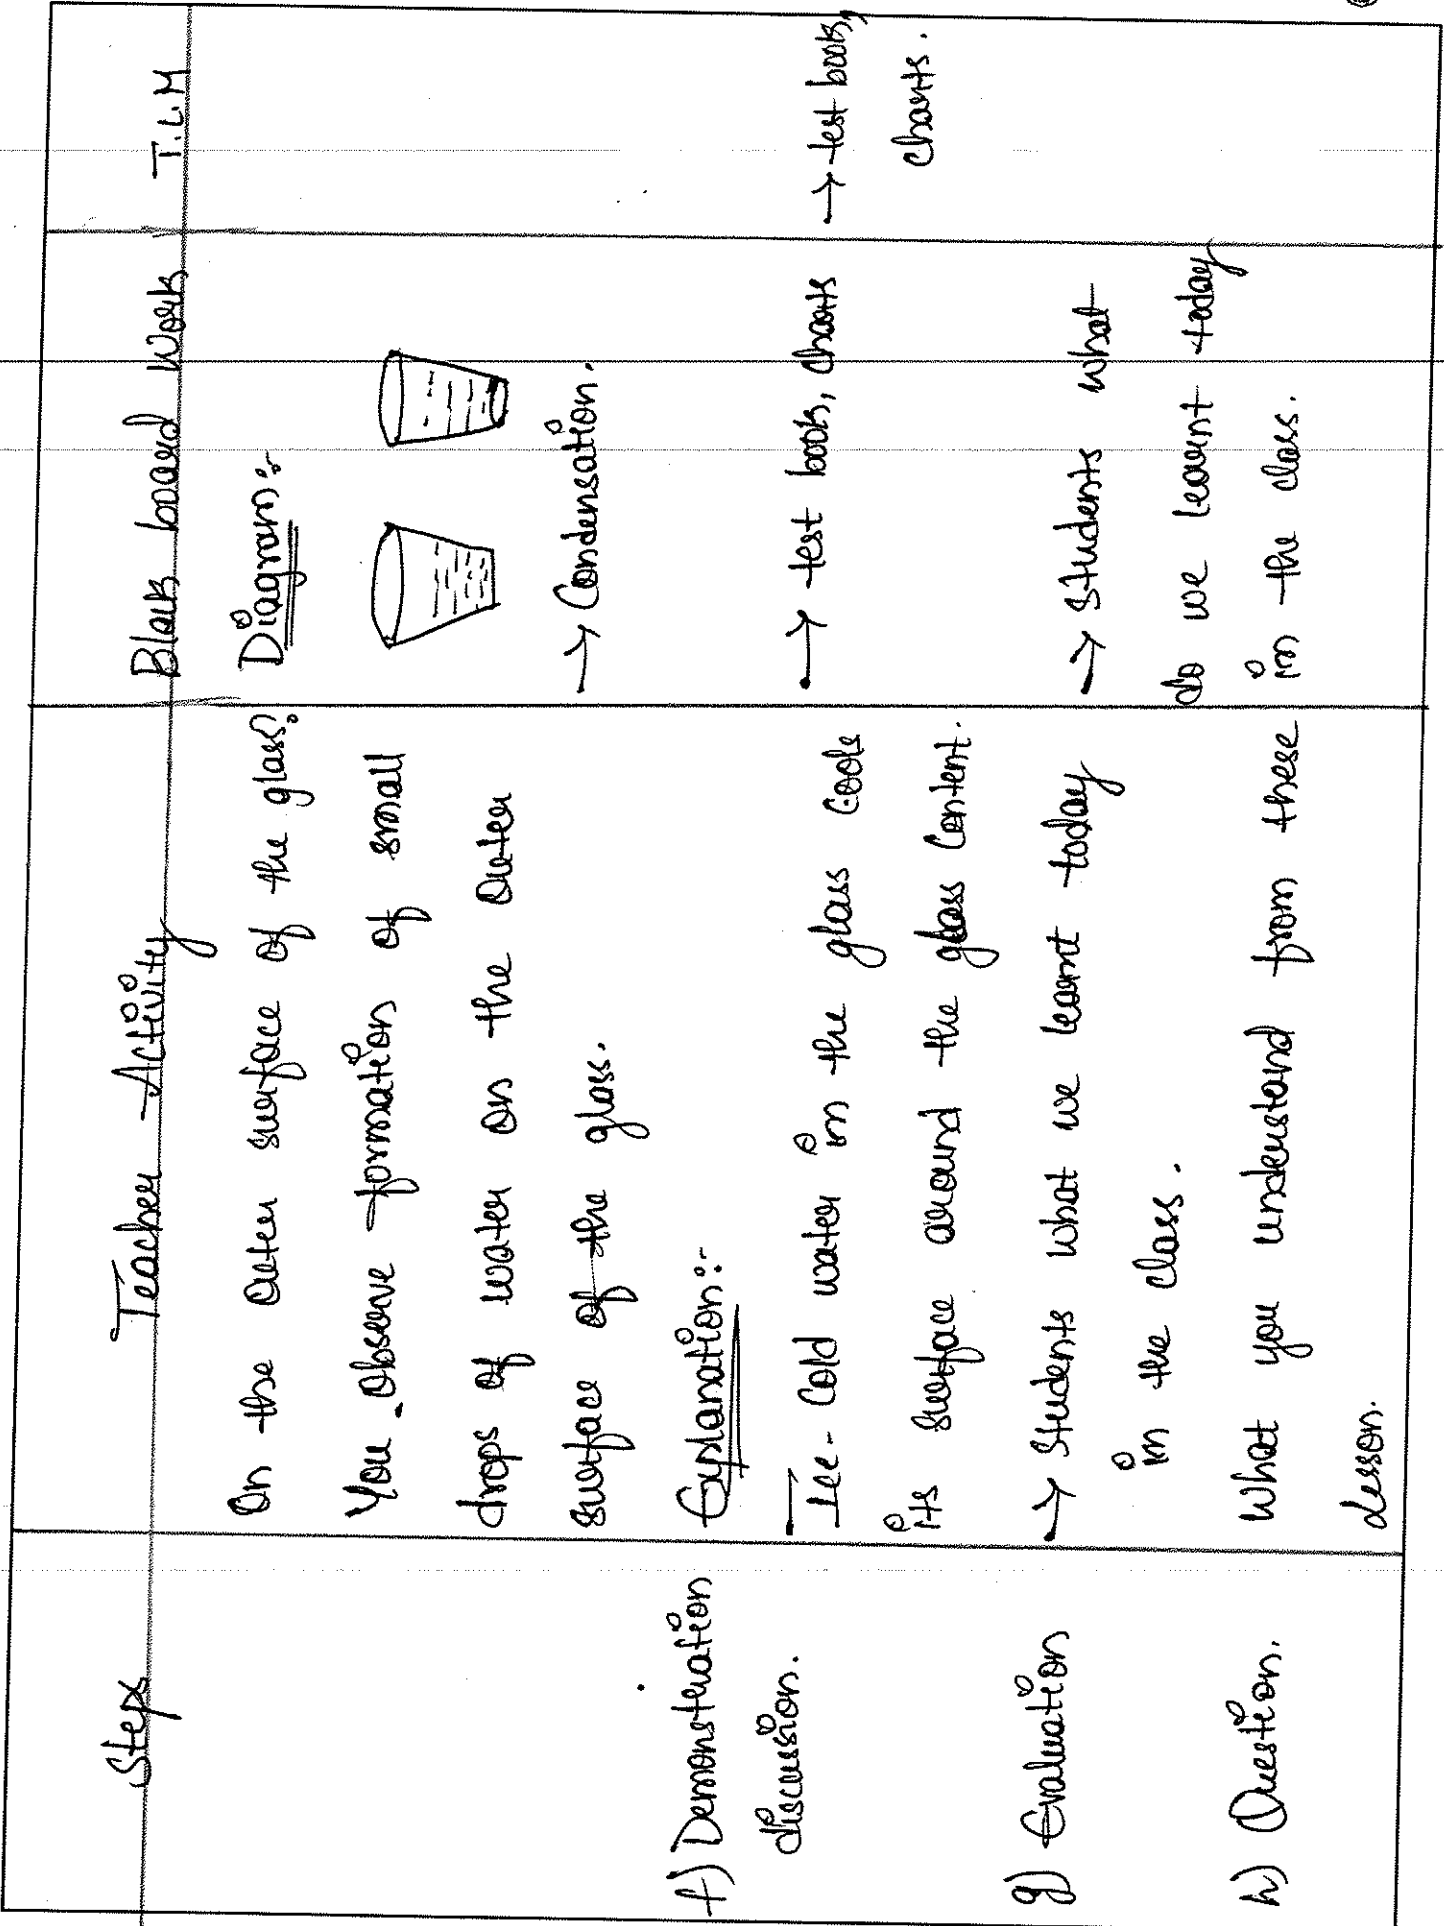 Steps
Teacher Activity
Black board Work
T.L.M
On the outer surface of the glass?
You observe formation of small
drops of water on the outer
surface of the glass.
Diagram:-
→ Condensation.
f) Demonstration
discussion.
Explanation:-
Ice-Cold water in the glass Cools
its surface around the glass Content.
→ test book, charts
→ test book,
charts.
g) Evaluation
→ Students what we learnt today
in the class.
→ Students what
do we learnt today
in the class.
h) Question.
What you understand from these
lesson.